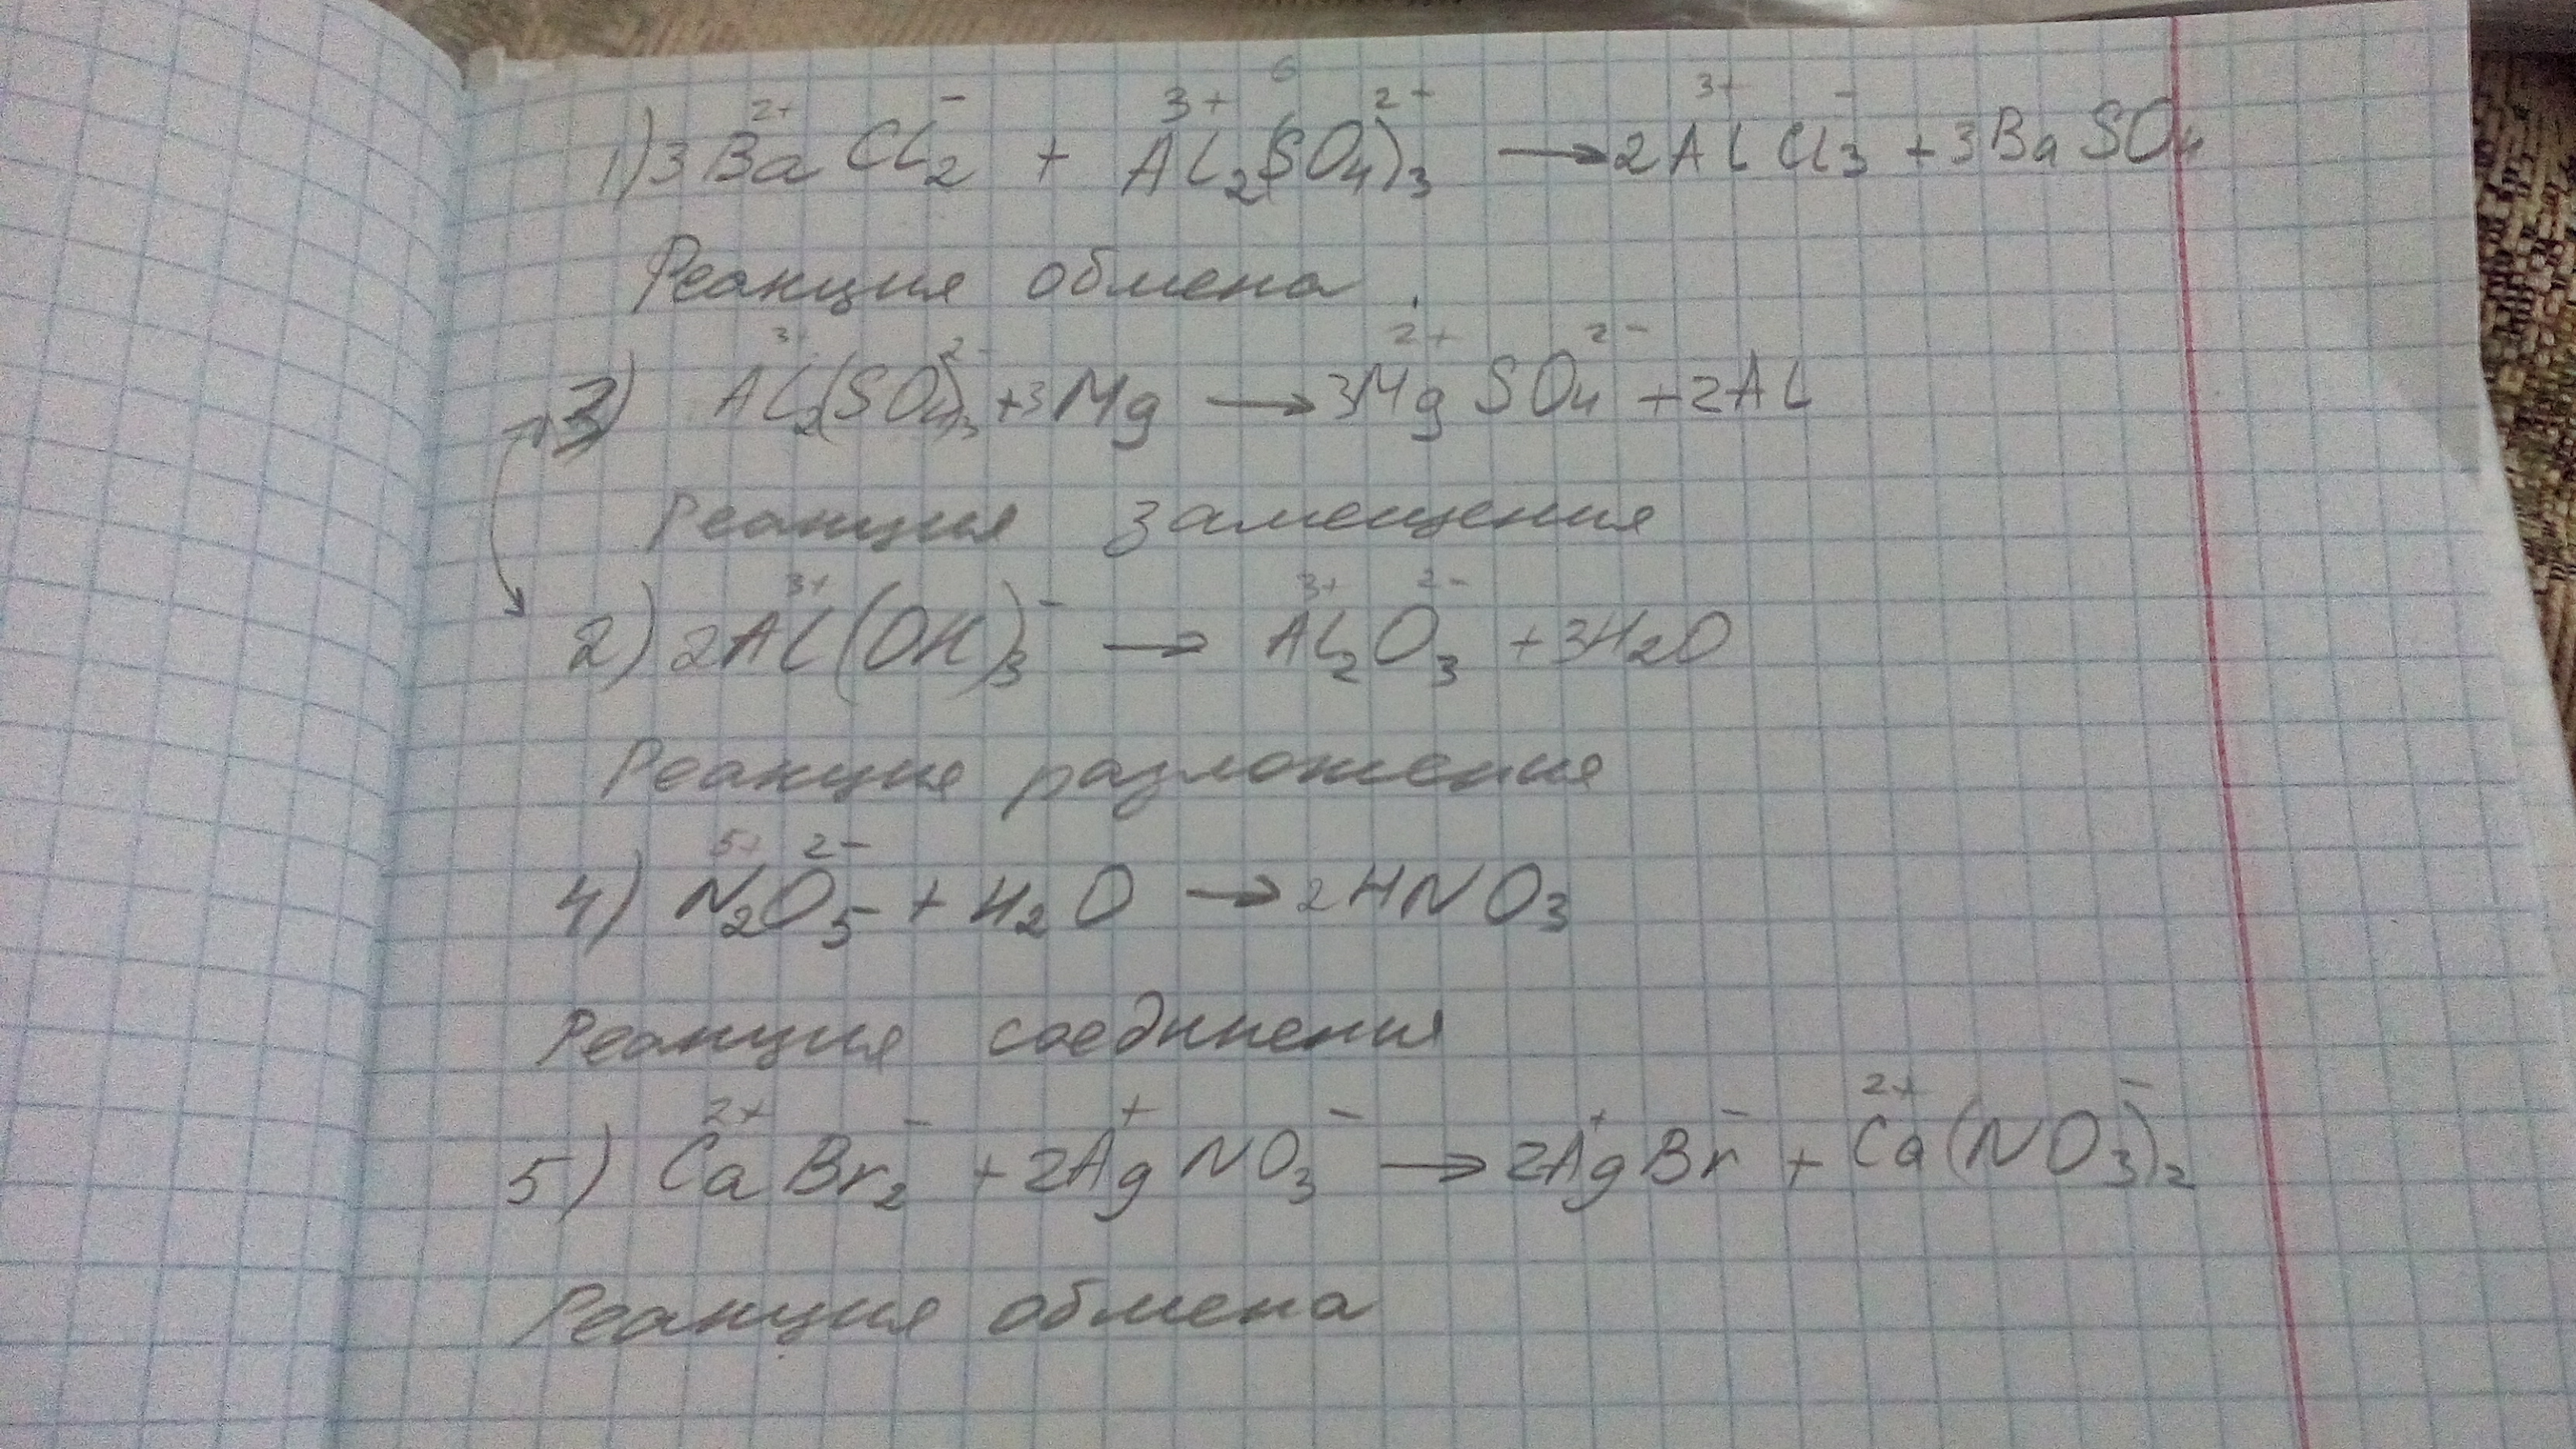 1) 3Ba²⁺Cl₂⁻ + Al₂³⁺(SO₄)₃²⁻ → 2Al³⁺Cl₃⁻ + 3BaSO₄
Реакция обмена.
3) Al₂³⁺(SO₄)₃²⁻ + 3Mg → 3Mg²⁺SO₄²⁻ + 2Al
Реакция замещения
2) 2Al³⁺(OH)₃⁻ → Al₂³⁺O₃²⁻ + 3H₂O
Реакция разложения
4) N₂⁵⁺O₅²⁻ + H₂O → 2HNO₃
Реакция соединения
5) Ca²⁺Br₂⁻ + 2Ag⁺NO₃⁻ → 2Ag⁺Br⁻ + Ca²⁺(NO₃)₂⁻
Реакция обмена